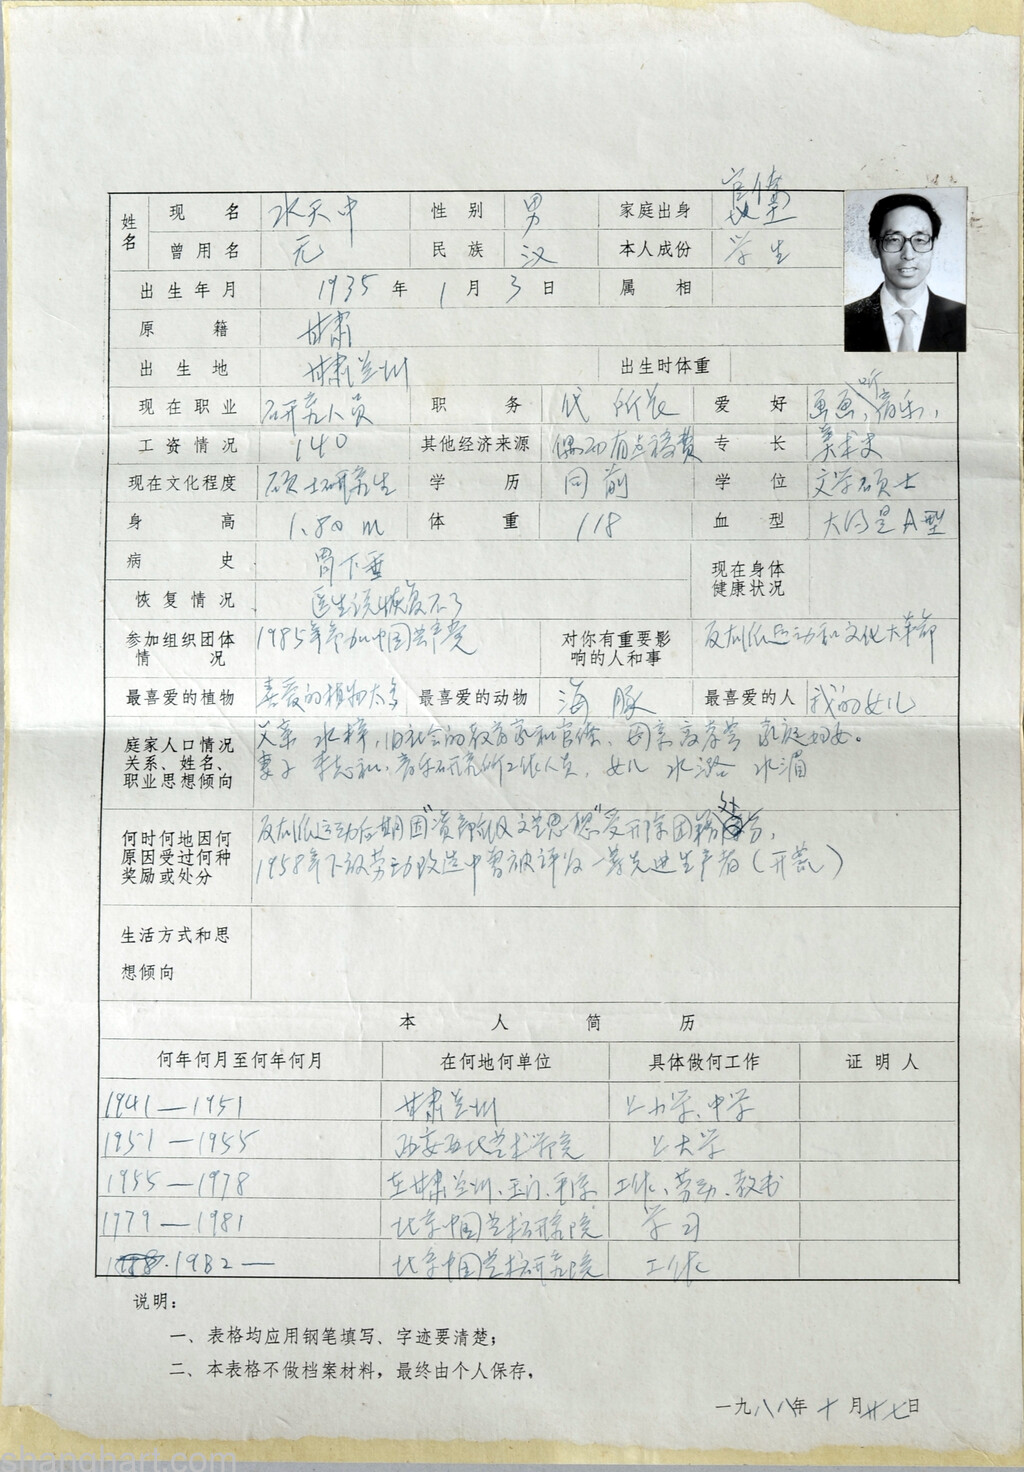 姓名 现名 水天中 性别 男 家庭出身 官僚地主
曾用名 无 民族 汉 本人成份 学生
出生年月 1935年1月3日 属相
原籍 甘肃
出生地 甘肃兰州 出生时体重
现在职业 研究人员 职务 代所长 爱好 画画、听音乐、
工资情况 140 其他经济来源 偶而有点稿费 专长 美术史
现在文化程度 硕士研究生 学历 同前 学位 文学硕士
身高 1.80m 体重 118 血型 大约是A型
病史 胃下垂 现在身体健康状况
恢复情况 医生说恢复不了
参加组织团体情况 1985年参加中国共产党 对你有重要影响的人和事 反右派运动和文化大革命
最喜爱的植物 喜爱的植物太多 最喜爱的动物 海豚 最喜爱的人 我的女儿
庭家人口情况
关系、姓名、
职业思想倾向
父亲 水梓,旧社会的教育家和官僚、母亲 家庭妇女。
妻子 音乐研究所工作人员,女儿 水潞 水湄
何时何地因何
原因受过何种
奖励或处分
反右派运动后期因"资产阶级文艺思想"受开除团籍处分,
1958年下放劳动改造中曾被评为一等先进生产者(开荒)
生活方式和思
想倾向
本人简历
何年何月至何年何月 在何地何单位 具体做何工作 证明人
1941—1951 甘肃兰州 上小学、中学
1951—1955 西安西北艺术学院 上大学
1955—1978 在甘肃兰州、玉门、平凉 工作、劳动、教书
1979—1981 北京中国艺术研究院 学习
1982— 北京中国艺术研究院 工作
说明:
一、表格均应用钢笔填写、字迹要清楚;
二、本表格不做档案材料,最终由个人保存,
一九八八年十月廿七日
shanghart.com